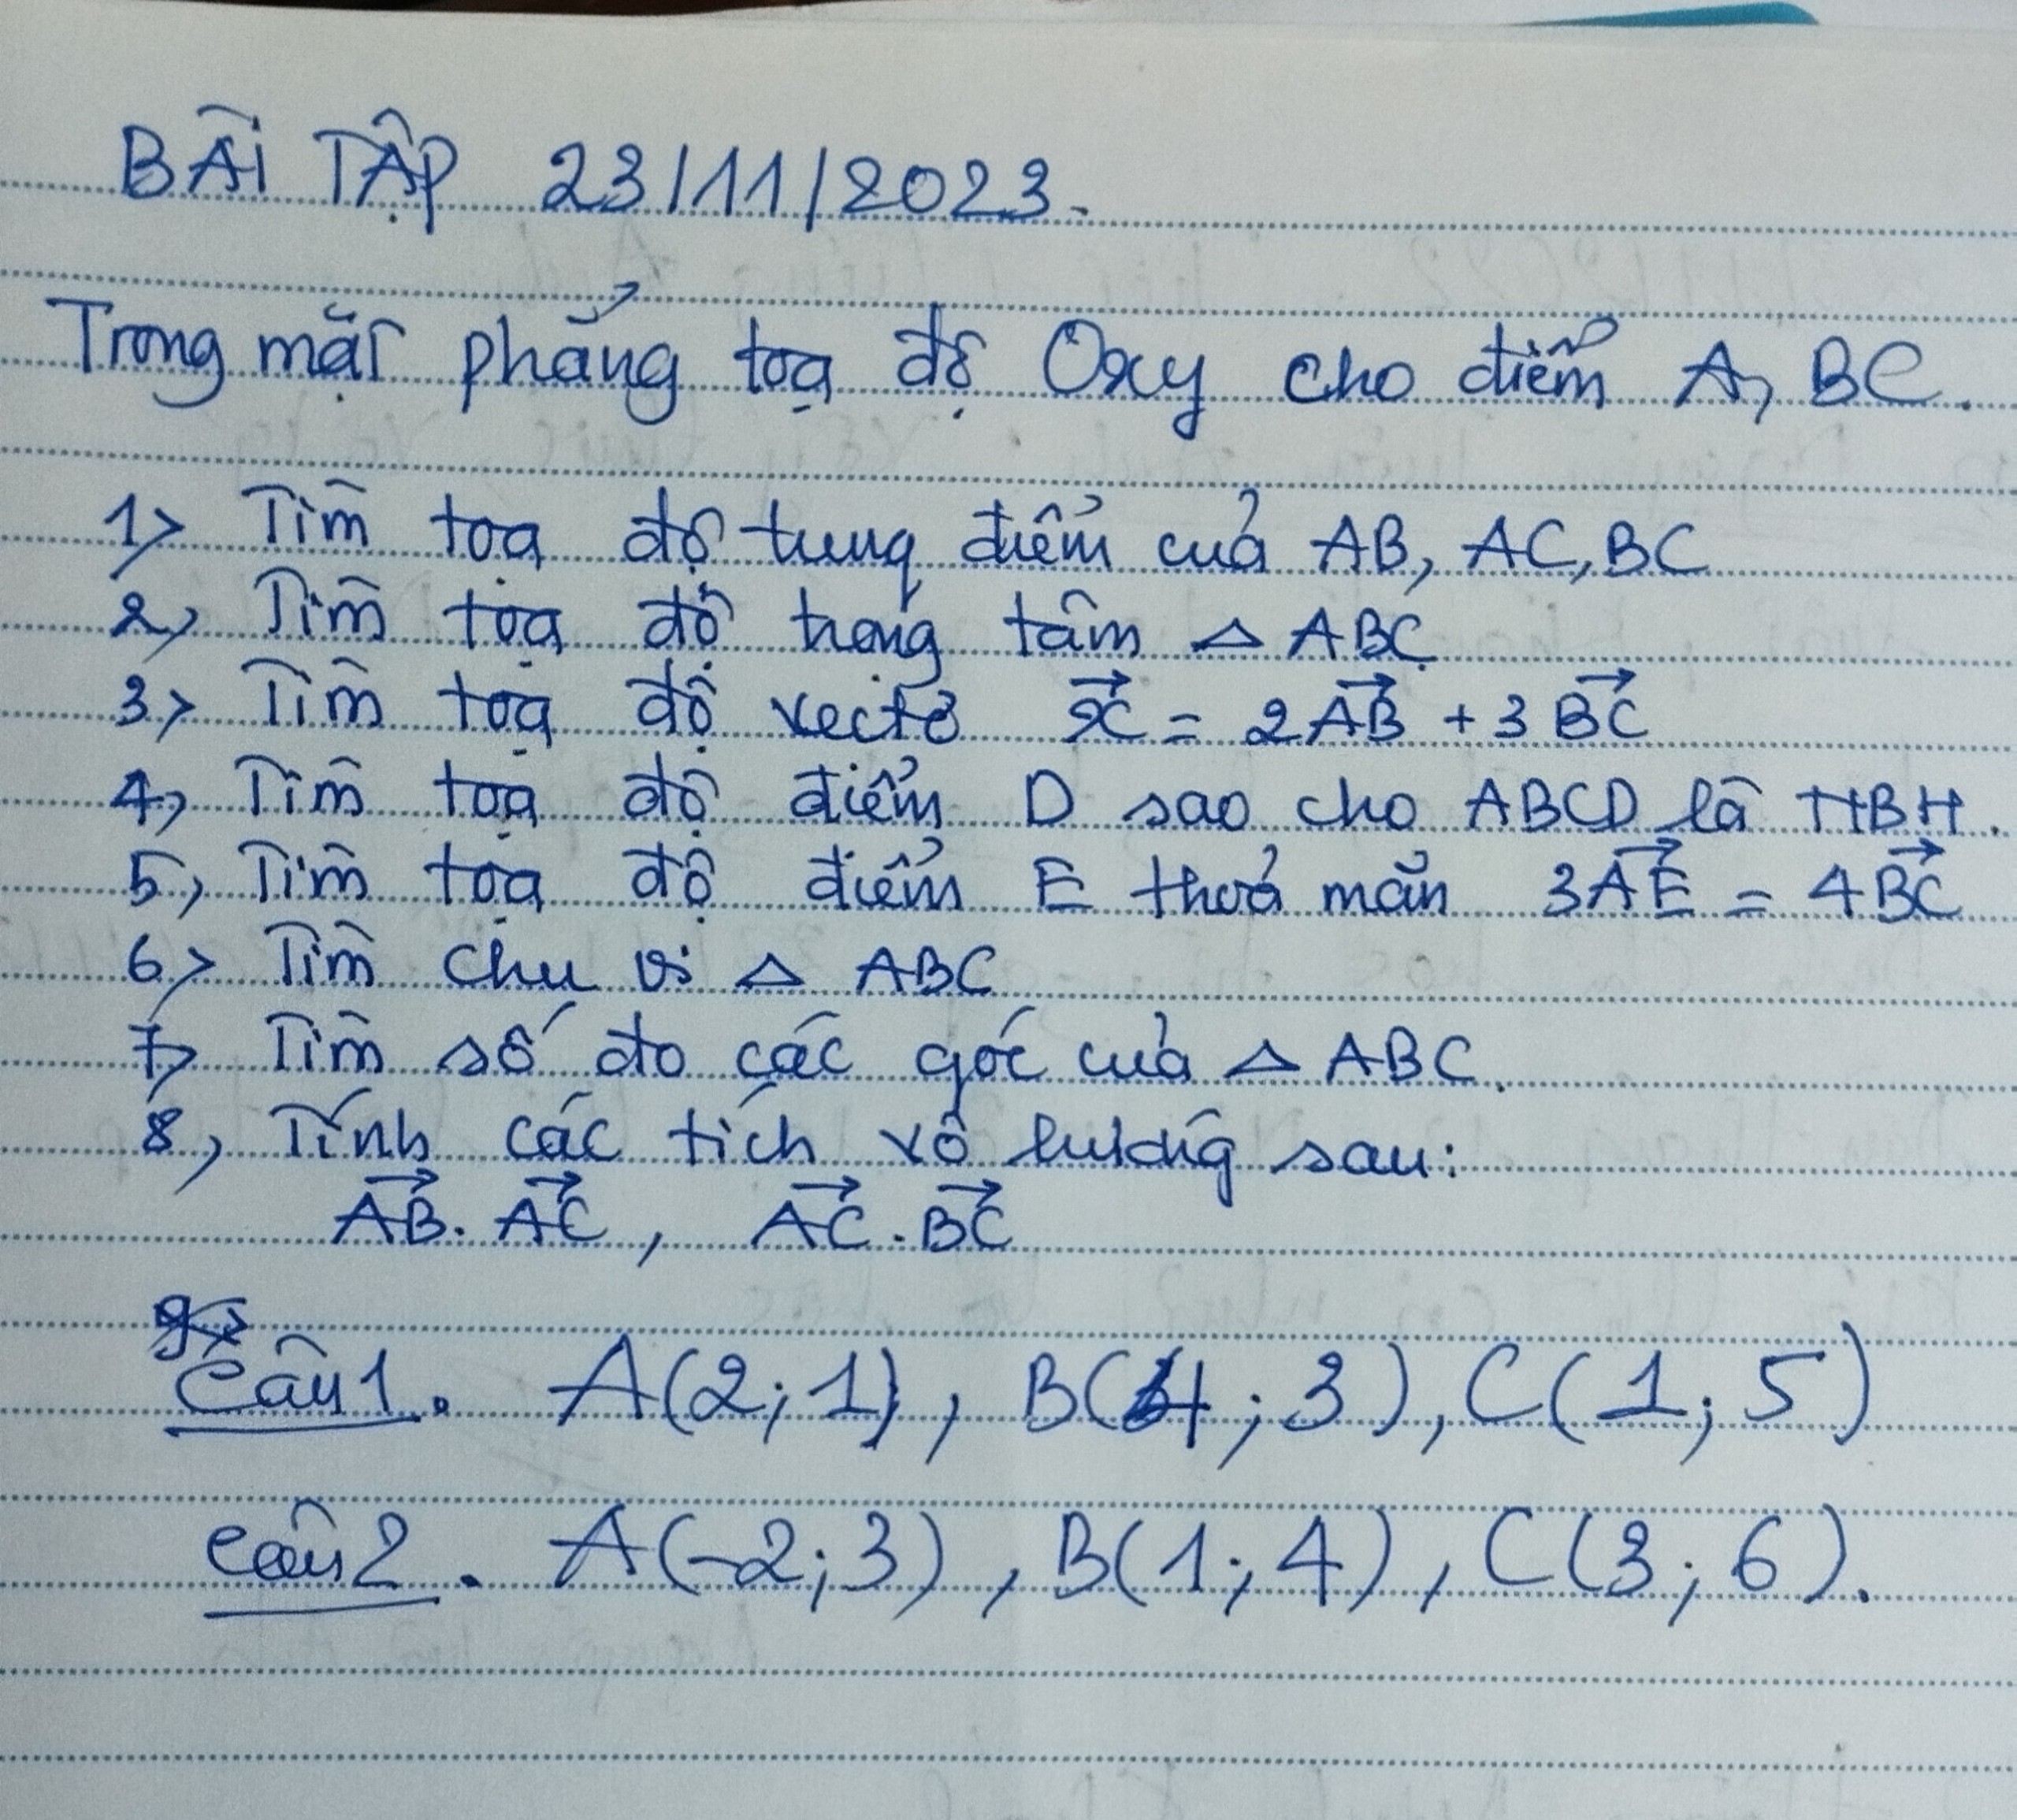 BÀI TẬP 23/11/2023.
Trong mặt phẳng toạ độ Oxy cho điểm A, BC.
1> Tìm toạ độ trung điểm của AB, AC, BC
2, Tìm toạ độ trọng tâm △ ABC
3> Tìm toạ độ vectơ x⃗ = 2AB⃗ + 3BC⃗
4, Tìm toạ độ điểm D sao cho ABCD là HBH.
5, Tìm toạ độ điểm E thoả mãn 3AE⃗ = 4BC⃗
6> Tìm chu vi △ ABC
7> Tìm số đo các góc của △ ABC.
8, Tính các tích vô hướng sau:
AB⃗. AC⃗, AC⃗. BC⃗
Câu 1. A(2; 1), B(4; 3), C(1; 5)
Câu 2. A(-2; 3), B(1; 4), C(3; 6).